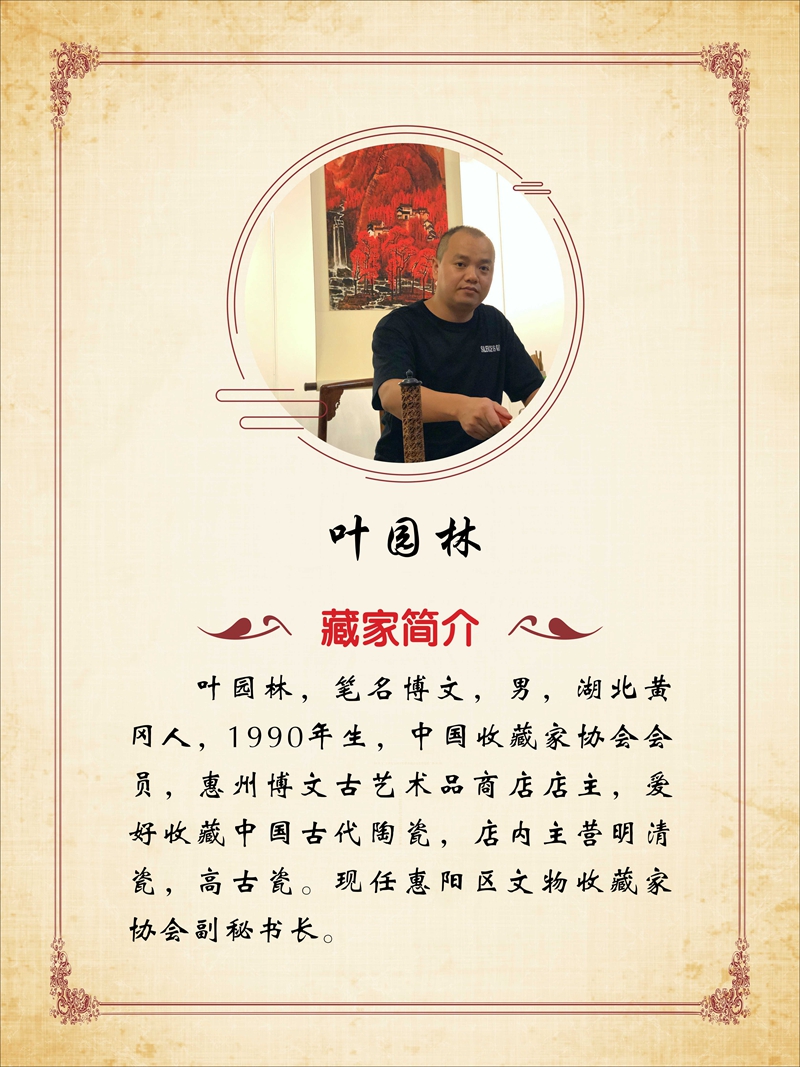 叶园林
藏家简介
叶园林，笔名博文，男，湖北黄
冈人，1990年生，中国收藏家协会会
员，惠州博文古艺术品商店店主，爱
好收藏中国古代陶瓷，店内主营明清
瓷，高古瓷。现任惠阳区文物收藏家
协会副秘书长。